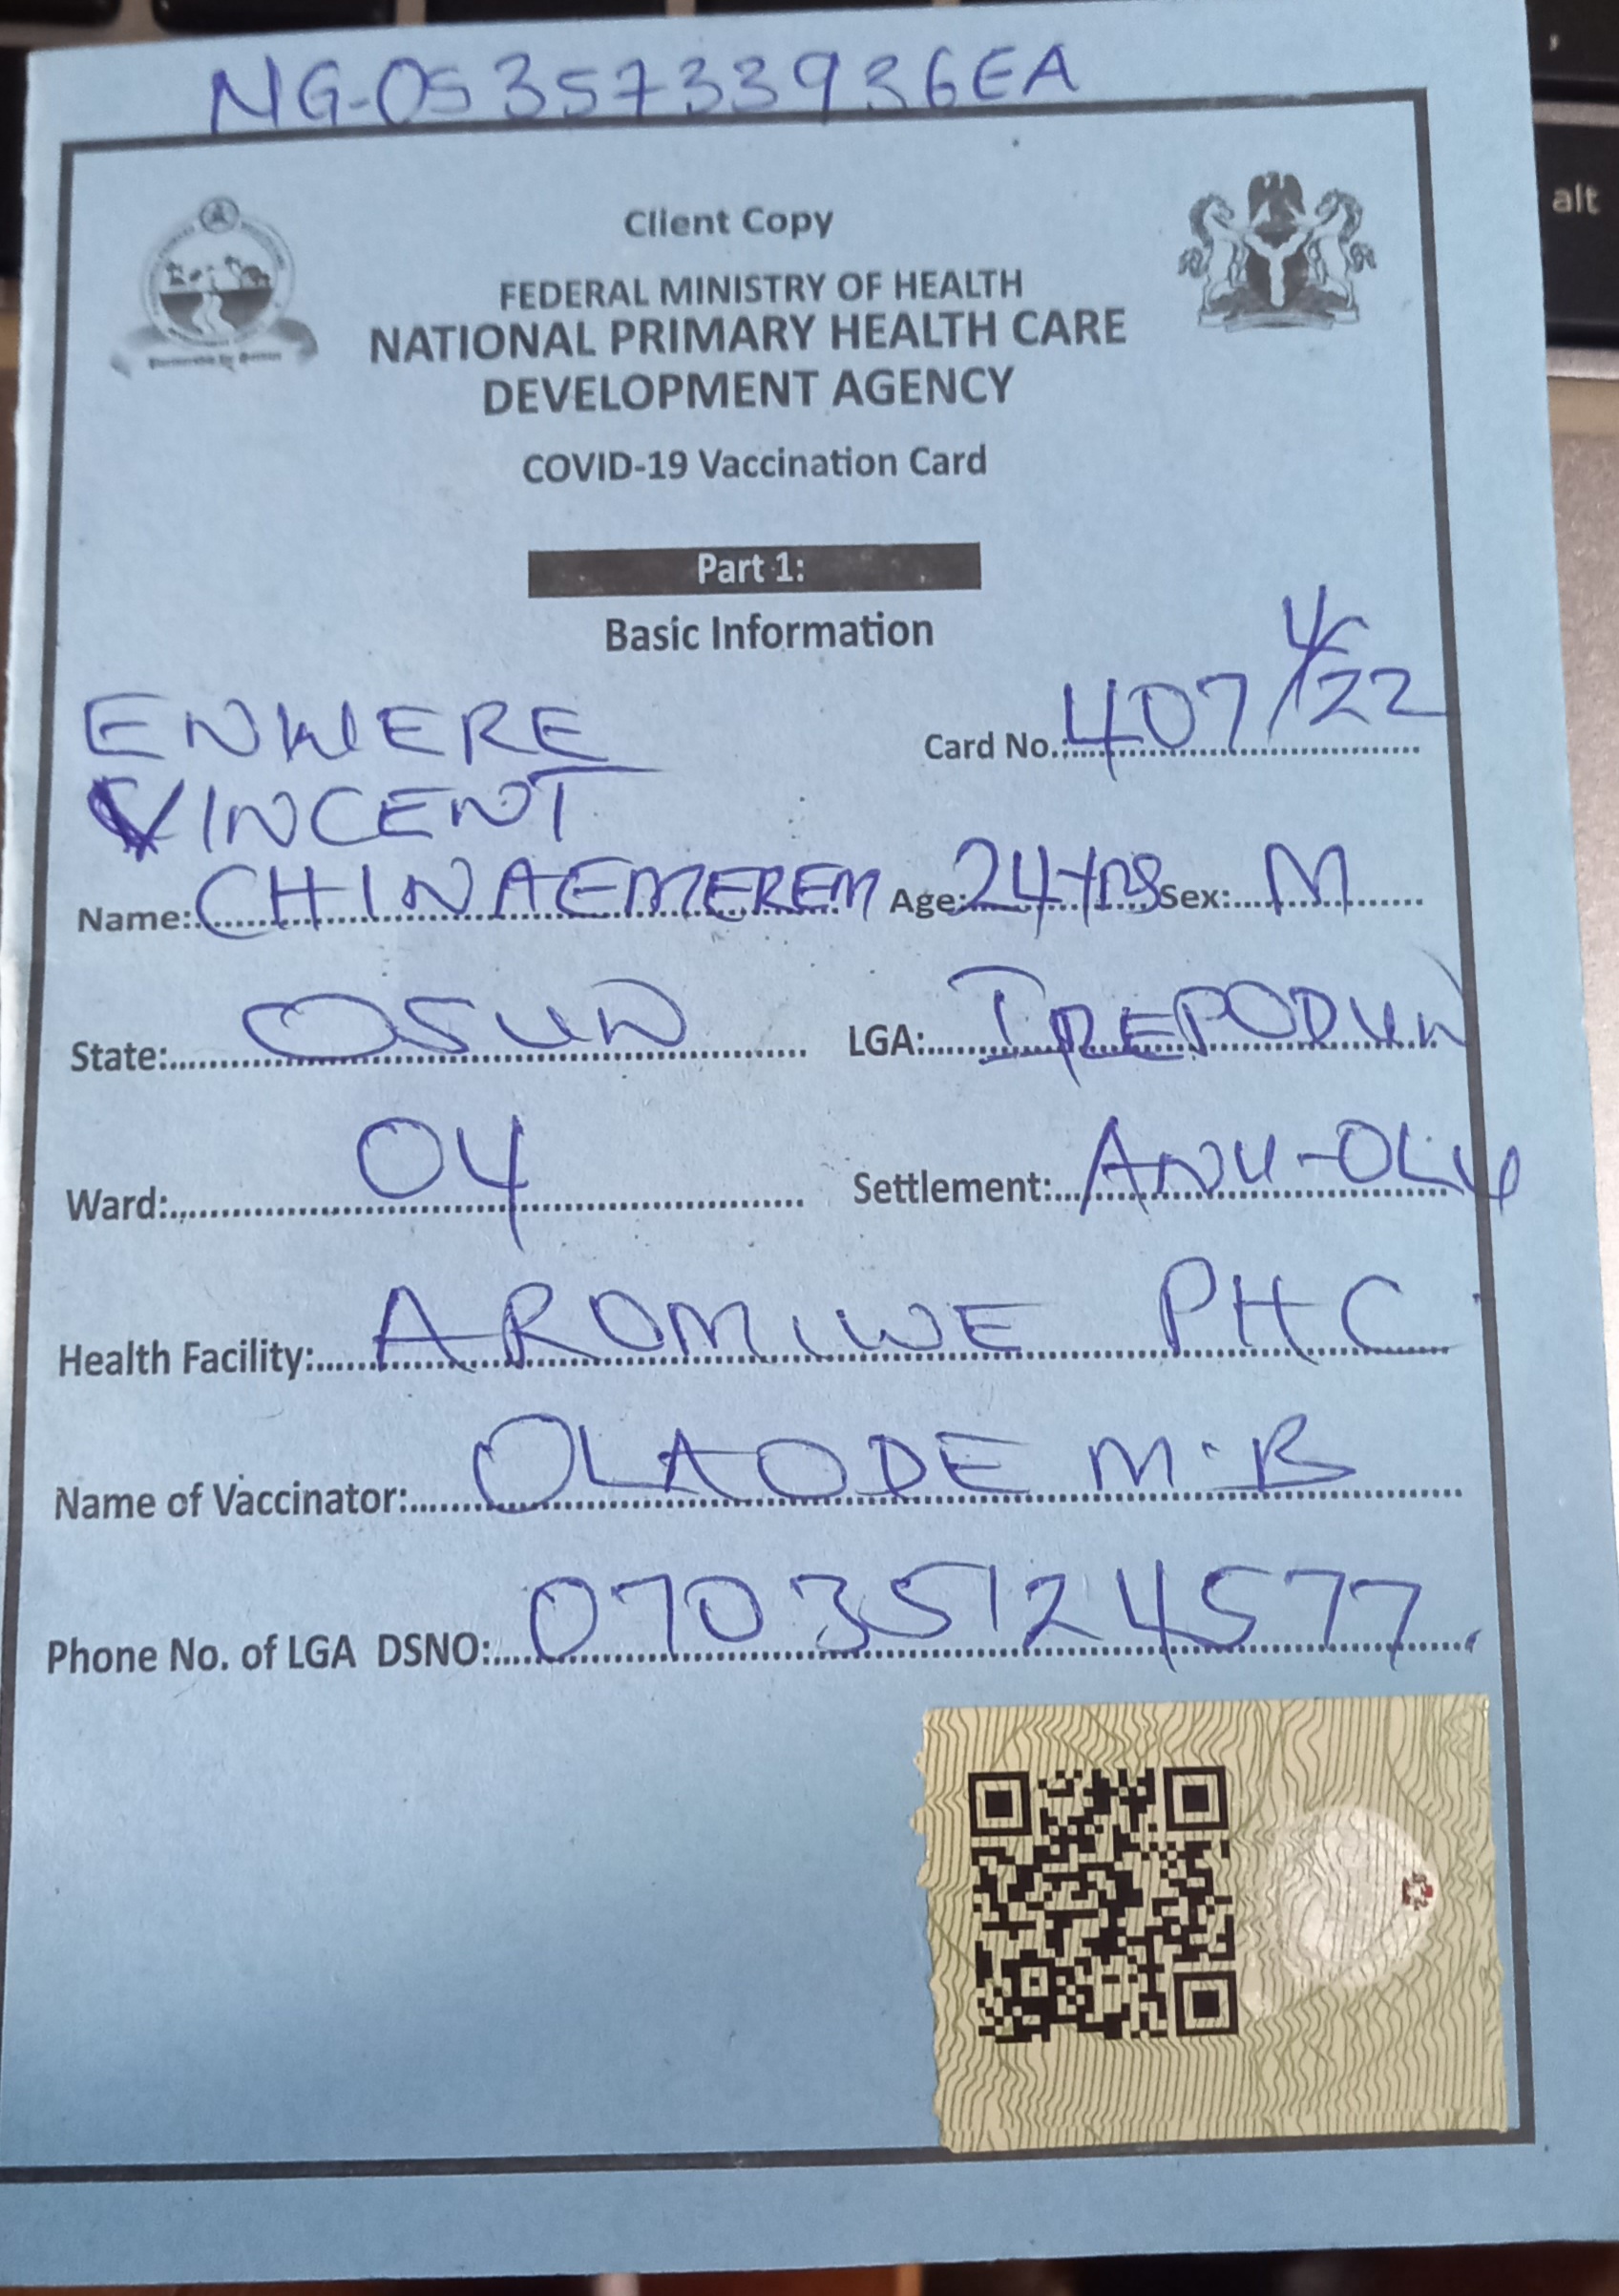 NG-0535733936EA
Client Copy
FEDERAL MINISTRY OF HEALTH
NATIONAL PRIMARY HEALTH CARE
DEVELOPMENT AGENCY
COVID-19 Vaccination Card
Part 1:
Basic Information
ENWERE
Card No.: 407/22
VINCENT
Name: CHINAEMEREM Age: 24yrs Sex: M
State: OSUN LGA: IREPODUN
Ward: 04 Settlement: ANU-OLU
Health Facility: AROMIWE PHC
Name of Vaccinator: OLAODE M.B
Phone No. of LGA DSNO: 07035124577
alt